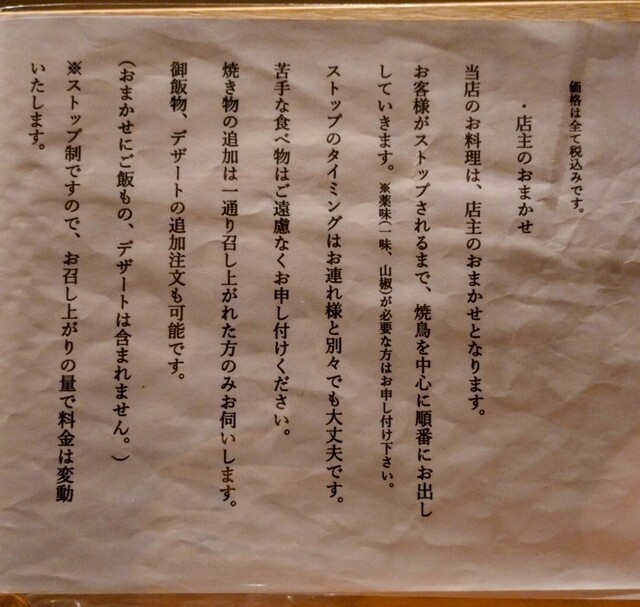 価格は全て税込みです。
・店主のおまかせ
当店のお料理は、店主のおまかせとなります。
お客様がストップされるまで、焼鳥を中心に順番にお出し
していきます。※薬味(一味、山椒)が必要な方はお申し付け下さい。
ストップのタイミングはお連れ様と別々でも大丈夫です。
苦手な食べ物はご遠慮なくお申し付けください。
焼き物の追加は一通り召し上がれた方のみお伺いします。
御飯物、デザートの追加注文も可能です。
(おまかせにご飯もの、デザートは含まれません。)
※ストップ制ですので、お召し上がりの量で料金は変動
いたします。